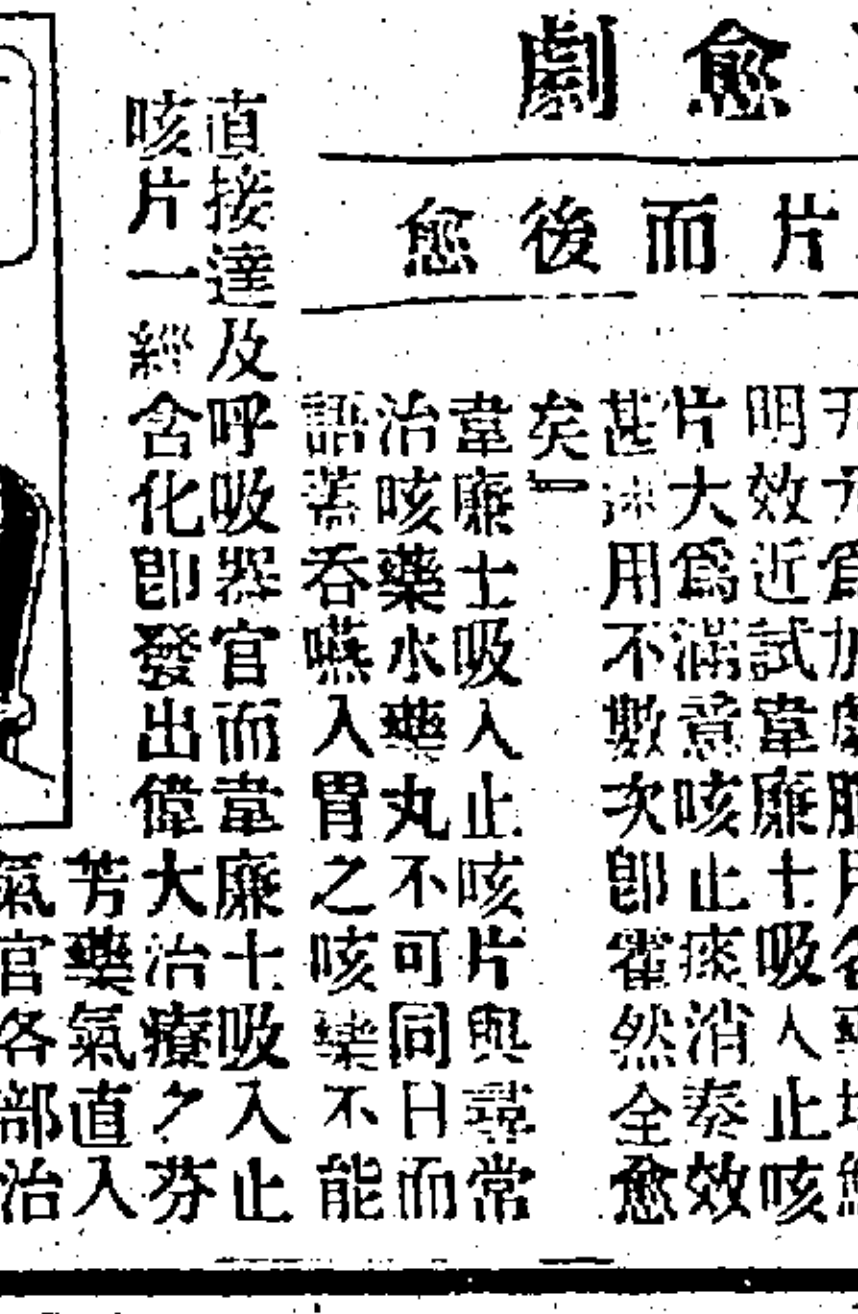 愈劇
片而後愈
明效近試韋廉士吸入止咳
片大爲滿意咳止痰消奏效
甚速用不數次卽霍然全愈
矣』
韋廉士吸入止咳片與尋常
治咳藥水藥丸不可同日而
語蓋吞嚥入胃之咳藥不能
直接達及呼吸器官而韋廉士吸入止
咳片一經含化卽發出偉大治療之芬
芳藥氣直入
氣官各部治